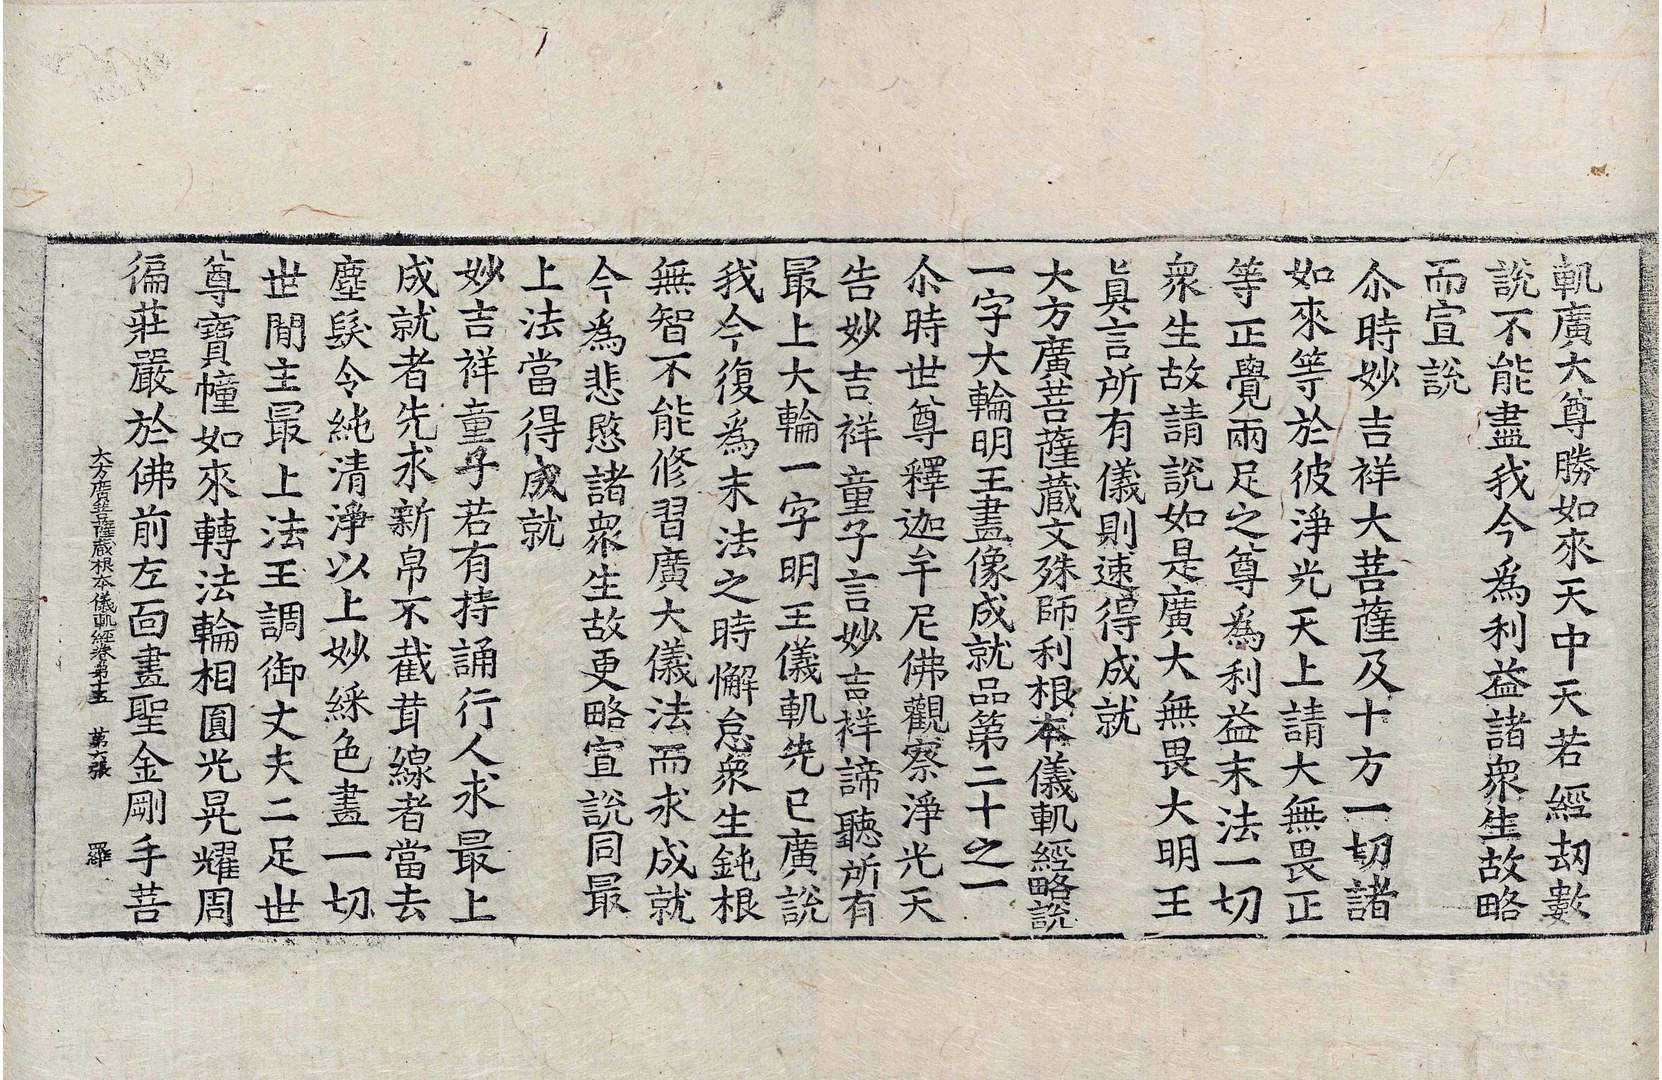 軌廣大尊勝如來天中天若經劫數
說不能盡我今爲利益諸衆生故略
而宣說
尒時妙吉祥大菩薩及十方一切諸
如來等於彼淨光天上請大無畏正
等正覺兩足之尊爲利益末法一切
衆生故請說如是廣大無畏大明王
眞言所有儀則速得成就
大方廣菩薩藏文殊師利根本儀軌經略說
一字大輪明王畫像成就品第二十之一
尒時世尊釋迦牟尼佛觀察淨光天
告妙吉祥童子言妙吉祥諦聽所有
最上大輪一字明王儀軌先已廣說
我今復爲末法之時懈怠衆生鈍根
無智不能修習廣大儀法而求成就
今爲悲愍諸衆生故更略宣說同最
上法當得成就
妙吉祥童子若有持誦行人求最上
成就者先求新帛不截茸線者當去
塵髮令純清淨以上妙綵色畫一切
世間主最上法王調御丈夫二足世
尊寶幢如來轉法輪相圓光晃耀周
徧莊嚴於佛前左面畫聖金剛手菩
大方廣菩薩藏根本儀軌經卷第十五 第六張 羅